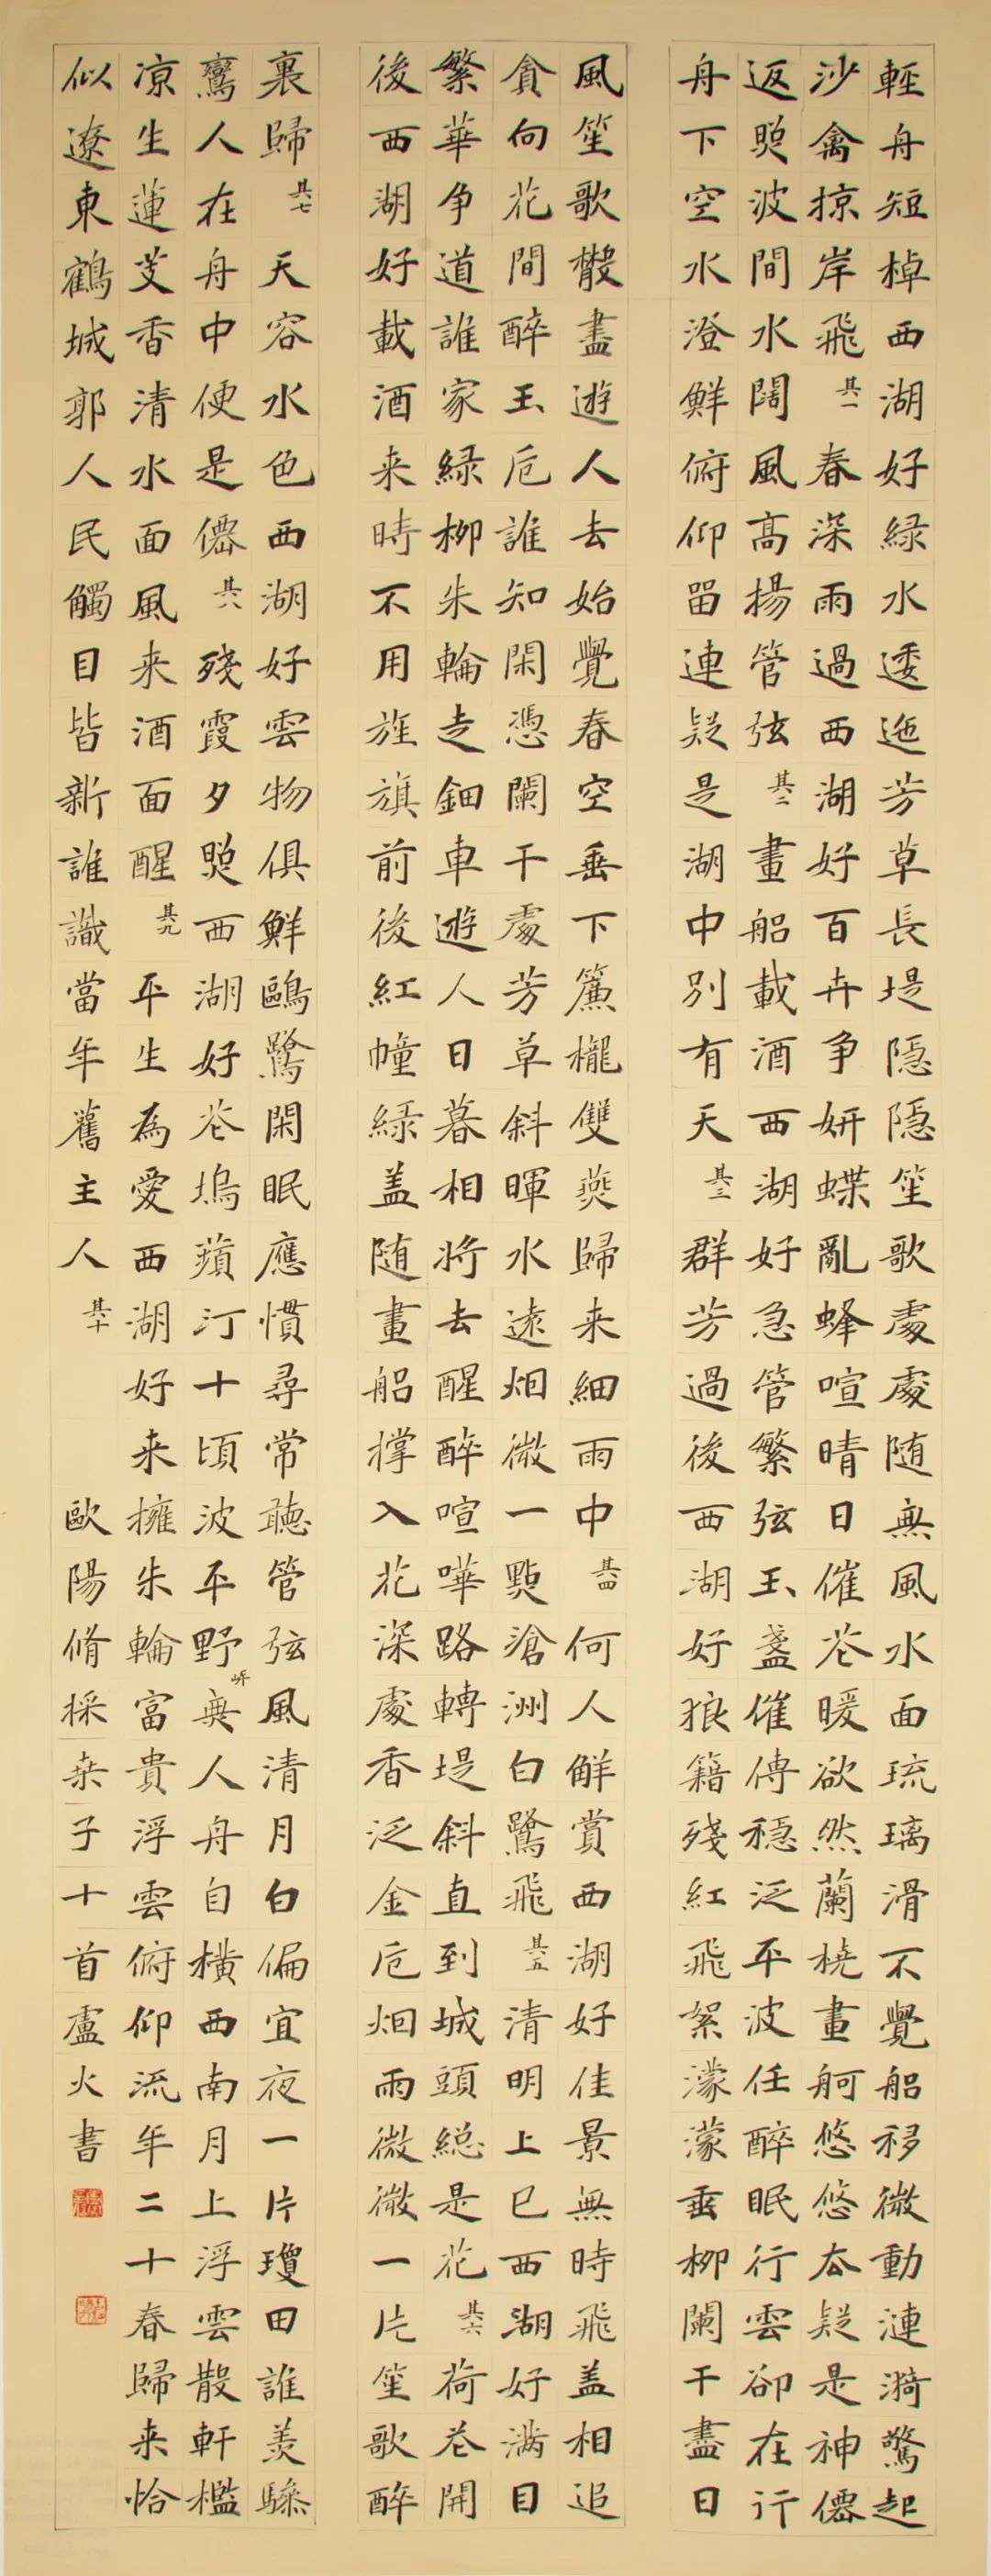 輕舟短棹西湖好緑水逶迤芳草長堤隱隱笙歌處處随無風水面琉璃滑不覺船移微動漣漪驚起
沙禽掠岸飛其一春深雨過西湖好百卉争妍蝶亂蜂喧晴日催花暖欲然蘭橈畫舸悠悠去疑是神僊
返照波間水闊風髙揚管弦其二畫船載酒西湖好急管繁弦玉盞催傳穩泛平波任醉眠行雲卻在行
舟下空水澄鮮俯仰留連疑是湖中別有天其三群芳過後西湖好狼籍殘紅飛絮濛濛垂柳闌干盡日
風笙歌散盡遊人去始覺春空垂下簾櫳雙燕歸来細雨中其四何人解賞西湖好佳景無時飛盖相追
貪向花間醉玉卮誰知閑憑闌干處芳草斜暉水遠烟微一點滄洲白鷺飛其五清明上巳西湖好满目
繁華争道誰家緑柳朱輪走鈿車遊人日暮相將去醒醉喧嘩路轉堤斜直到城頭総是花其六荷花開
後西湖好載酒来時不用旌旗前後紅幢緑盖随畫船撑入花深處香泛金卮烟雨微微一片笙歌醉
裏歸其七天容水色西湖好雲物俱鮮鷗鷺閑眠應慣尋常聽管弦風清月白偏宜夜一片瓊田誰羡驂
鸞人在舟中便是僊其八殘霞夕照西湖好花塢蘋汀十頃波平野岸無人舟自横西南月上浮雲散軒檻
凉生蓮芰香清水面風来酒面醒其九平生為愛西湖好来擁朱輪富貴浮雲俯仰流年二十春歸来恰
似遼東鶴城郭人民觸目皆新誰識當年舊主人其十歐陽脩採桑子十首盧火書